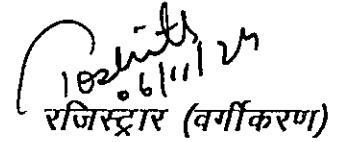 06/11/25
रजिस्ट्रार (वर्गीकरण)